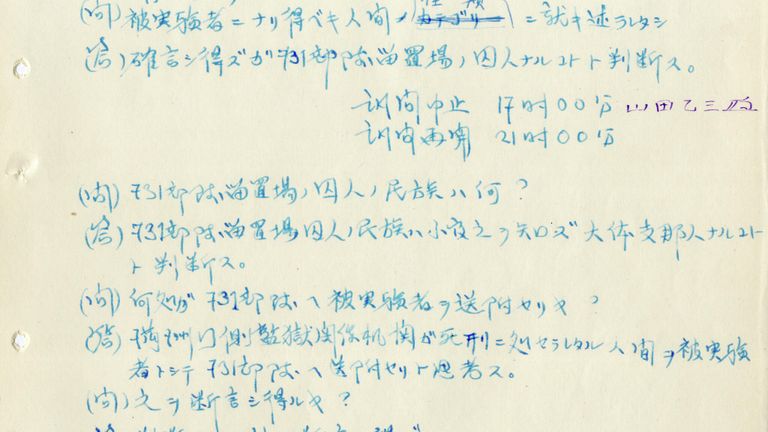 (问) 被実験者ニナリ得ベキ人間ノ種類カテゴリーニ就キ述ラレタシ
(答) 確言シ得ズガ731部隊留置場ノ囚人ナルコトト判断ス。
訊问中止 17时00分 山田乙三
訊问再開 21时00分
(问) 731部隊留置場ノ囚人ノ民族ハ何?
(答) 731部隊留置場囚人ノ民族ハ小官之ヲ知ロズ大体支那人ナルコト
ト判断ス。
(问) 何処ガ731部隊ヘ被実験者ヲ送附セリヤ?
(答) 満洲门側監獄関係机関ガ死刑ニ処セラレタル人間ヲ被実験
者トシテ731部隊ヘ送附セリト思考ス。
(问) 之ヲ断言シ得ルヤ?